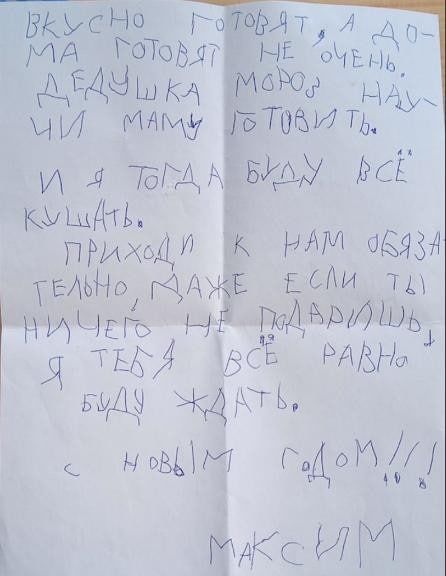 ВКУСНО ГОТОВЯТ, А ДО-
МА ГОТОВЯТ НЕ ОЧЕНЬ.
ДЕДУШКА МОРОЗ НАУ-
ЧИ МАМУ ГОТОВИТЬ.
И Я ТОГДА БУДУ ВСЁ
КУШАТЬ.
ПРИХОДИ К НАМ ОБЯЗА-
ТЕЛЬНО, ДАЖЕ ЕСЛИ ТЫ
НИЧЕГО НЕ ПОДАРИШЬ,
Я ТЕБЯ ВСЁ РАВНО
БУДУ ЖДАТЬ.
С НОВЫМ ГОДОМ!!!
МАКСИМ